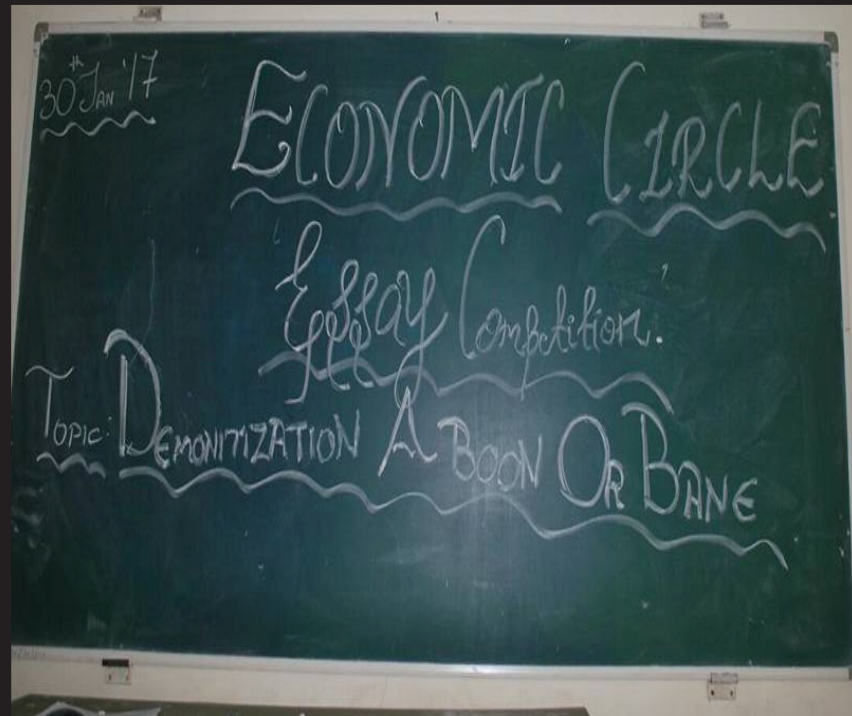 30th JAN '17
ECONOMIC CIRCLE
Essay Competition.
TOPIC: DEMONITIZATION A BOON OR BANE